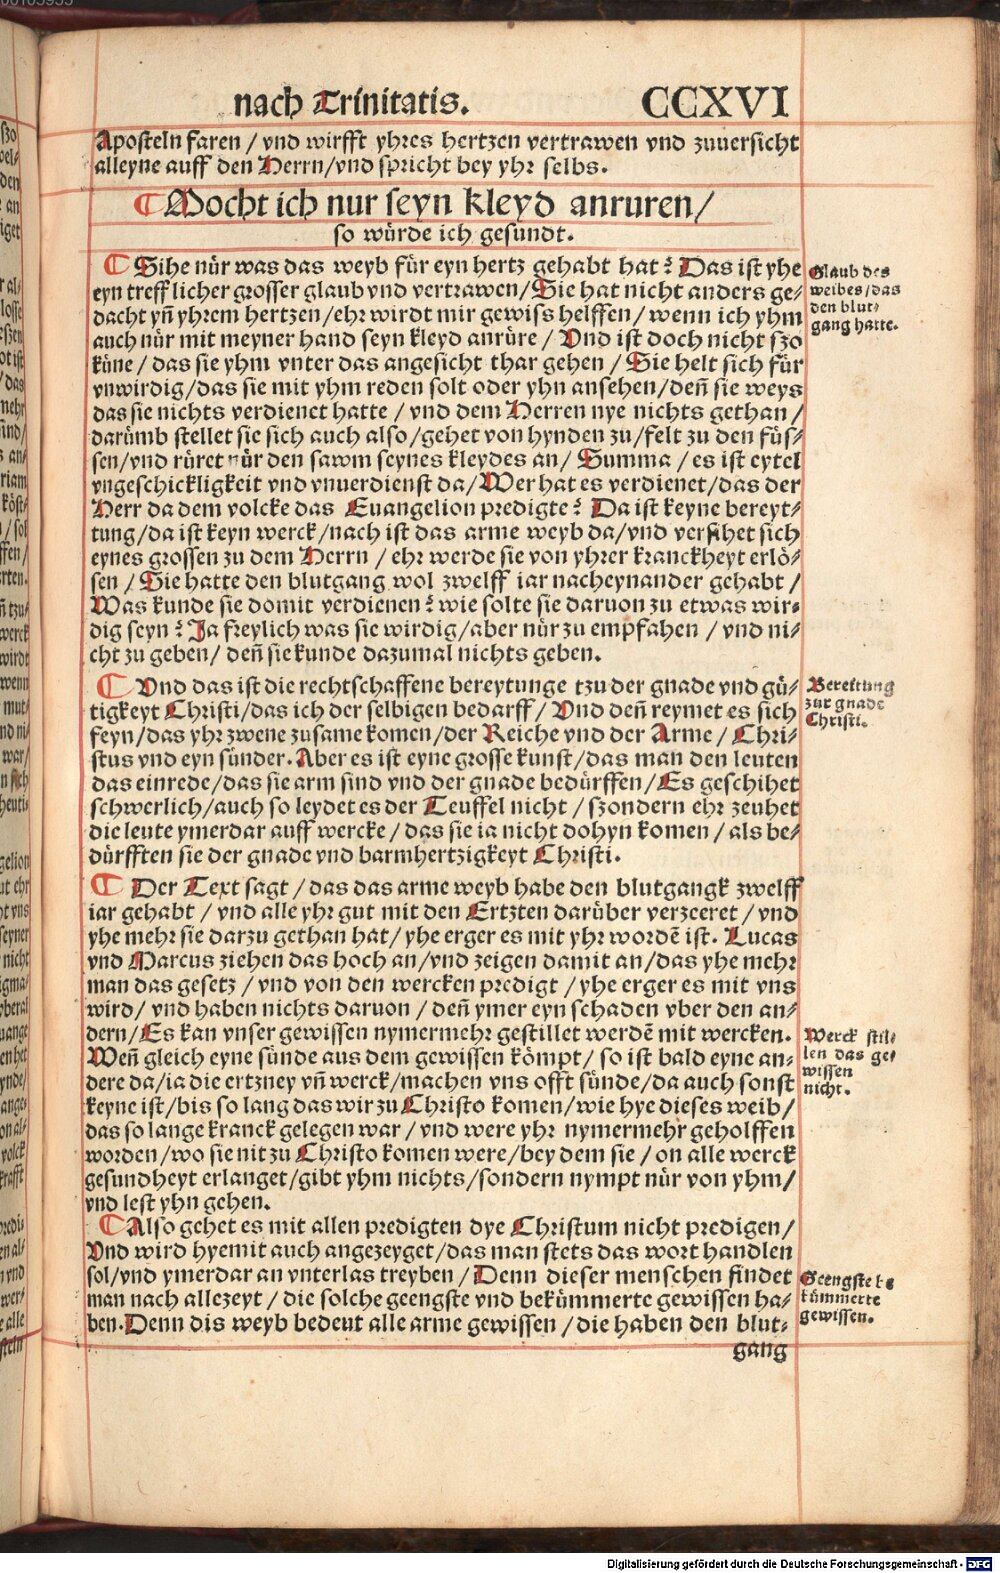 nach Trinitatis. CCXVI
Aposteln faren / vnd wirfft yhres hertzen vertrawen vnd zuuersicht
alleyne auff den Herrn/vnd spricht bey yhr selbs.
Mocht ich nur seyn kleyd anruren/
so würde ich gesundt.
Sihe nür was das weyb für eyn hertz gehabt hat? Das ist yhe
eyn trefflicher grosser glaub vnd vertrawen/Sie hat nicht anders ge-
dacht yñ yhrem hertzen/ehr wirdt mir gewiss helffen/wenn ich yhm
auch nür mit meyner hand seyn kleyd anrüre / Vnd ist doch nicht szo
küne / das sie yhm vnter das angesicht thar gehen / Sie helt sich für
vnwirdig/das sie mit yhm reden solt oder yhn ansehen/deñ sie weys
das sie nichts verdienet hatte / vnd dem Herren nye nichts gethan/
darümb stellet sie sich auch also/gehet von hynden zu/felt zu den füs-
sen/vnd rüret nür den sawm seynes kleydes an/ Summa / es ist eytel
vngeschickligkeit vnd vnuerdienst da/Wer hat es verdienet/das der
Herr da dem volcke das Euangelion predigte? Da ist keyne bereyt-
tung/da ist keyn werck/nach ist das arme weyb da/vnd versihet sich
eynes grossen zu dem Herrn / ehr werde sie von yhrer kranckheyt erlö-
sen / Sie hatte den blutgang wol zwelff iar nacheynander gehabt/
Was kunde sie domit verdienen? wie solte sie daruon zu etwas wir-
dig seyn? Ja freylich was sie wirdig/aber nür zu empfahen / vnd ni-
cht zu geben/ deñ sie kunde dazumal nichts geben.
Glaub des
weibes/das
den blut-
gang hatte.
Vnd das ist die rechtschaffene bereytunge tzu der gnade vnd gü-
tigkeyt Christi/das ich der selbigen bedarff/ Vnd deñ reymet es sich
feyn/das yhr zwene zusame komen/der Reiche vnd der Arme / Chri-
stus vnd eyn sünder. Aber es ist eyne grosse kunst/das man den leuten
das einrede/das sie arm sind vnd der gnade bedürffen/Es geschihet
schwerlich/auch so leydet es der Teuffel nicht / szondern ehr zeuhet
die leute ymerdar auff wercke/das sie ia nicht dohyn komen/als be-
dürfften sie der gnade vnd barmhertzigkeyt Christi.
Bereitung
zur gnade
Christi.
Der Text sagt / das das arme weyb habe den blutgangk zwelff
iar gehabt / vnd alle yhr gut mit den Ertzten darüber verzceret / vnd
yhe mehr sie darzu gethan hat/ yhe erger es mit yhr wordē ist. Lucas
vnd Marcus ziehen das hoch an/vnd zeigen damit an/das yhe mehr
man das gesetz / vnd von den wercken predigt / yhe erger es mit vns
wird/ vnd haben nichts daruon / deñ ymer eyn schaden vber den an-
dern/Es kan vnser gewissen nymermehr gestillet werdē mit wercken.
Weñ gleich eyne sünde aus dem gewissen kömpt/ so ist bald eyne an-
dere da/ia die ertzney vñ werck/machen vns offt sünde/da auch sonst
keyne ist/bis so lang das wir zu Christo komen/wie hye dieses weib/
das so lange kranck gelegen war / vnd were yhr nymermehr geholffen
worden/wo sie nit zu Christo komen were/bey dem sie / on alle werck
gesundheyt erlanget/gibt yhm nichts/sondern nympt nür von yhm/
vnd lest yhn gehen.
Werck stil-
len das ge-
wissen
nicht.
Also gehet es mit allen predigten dye Christum nicht predigen/
Vnd wird hyemit auch angezeyget/das man stets das wort handlen
sol/vnd ymerdar an vnterlas treyben/Denn dieser menschen findet
man nach allezeyt / die solche geengste vnd bekümmerte gewissen ha-
ben. Denn dis weyb bedeut alle arme gewissen /die haben den blut-
gang
Geengste be
kümmerte
gewissen.
Digitalisierung gefördert durch die Deutsche Forschungsgemeinschaft - DFG